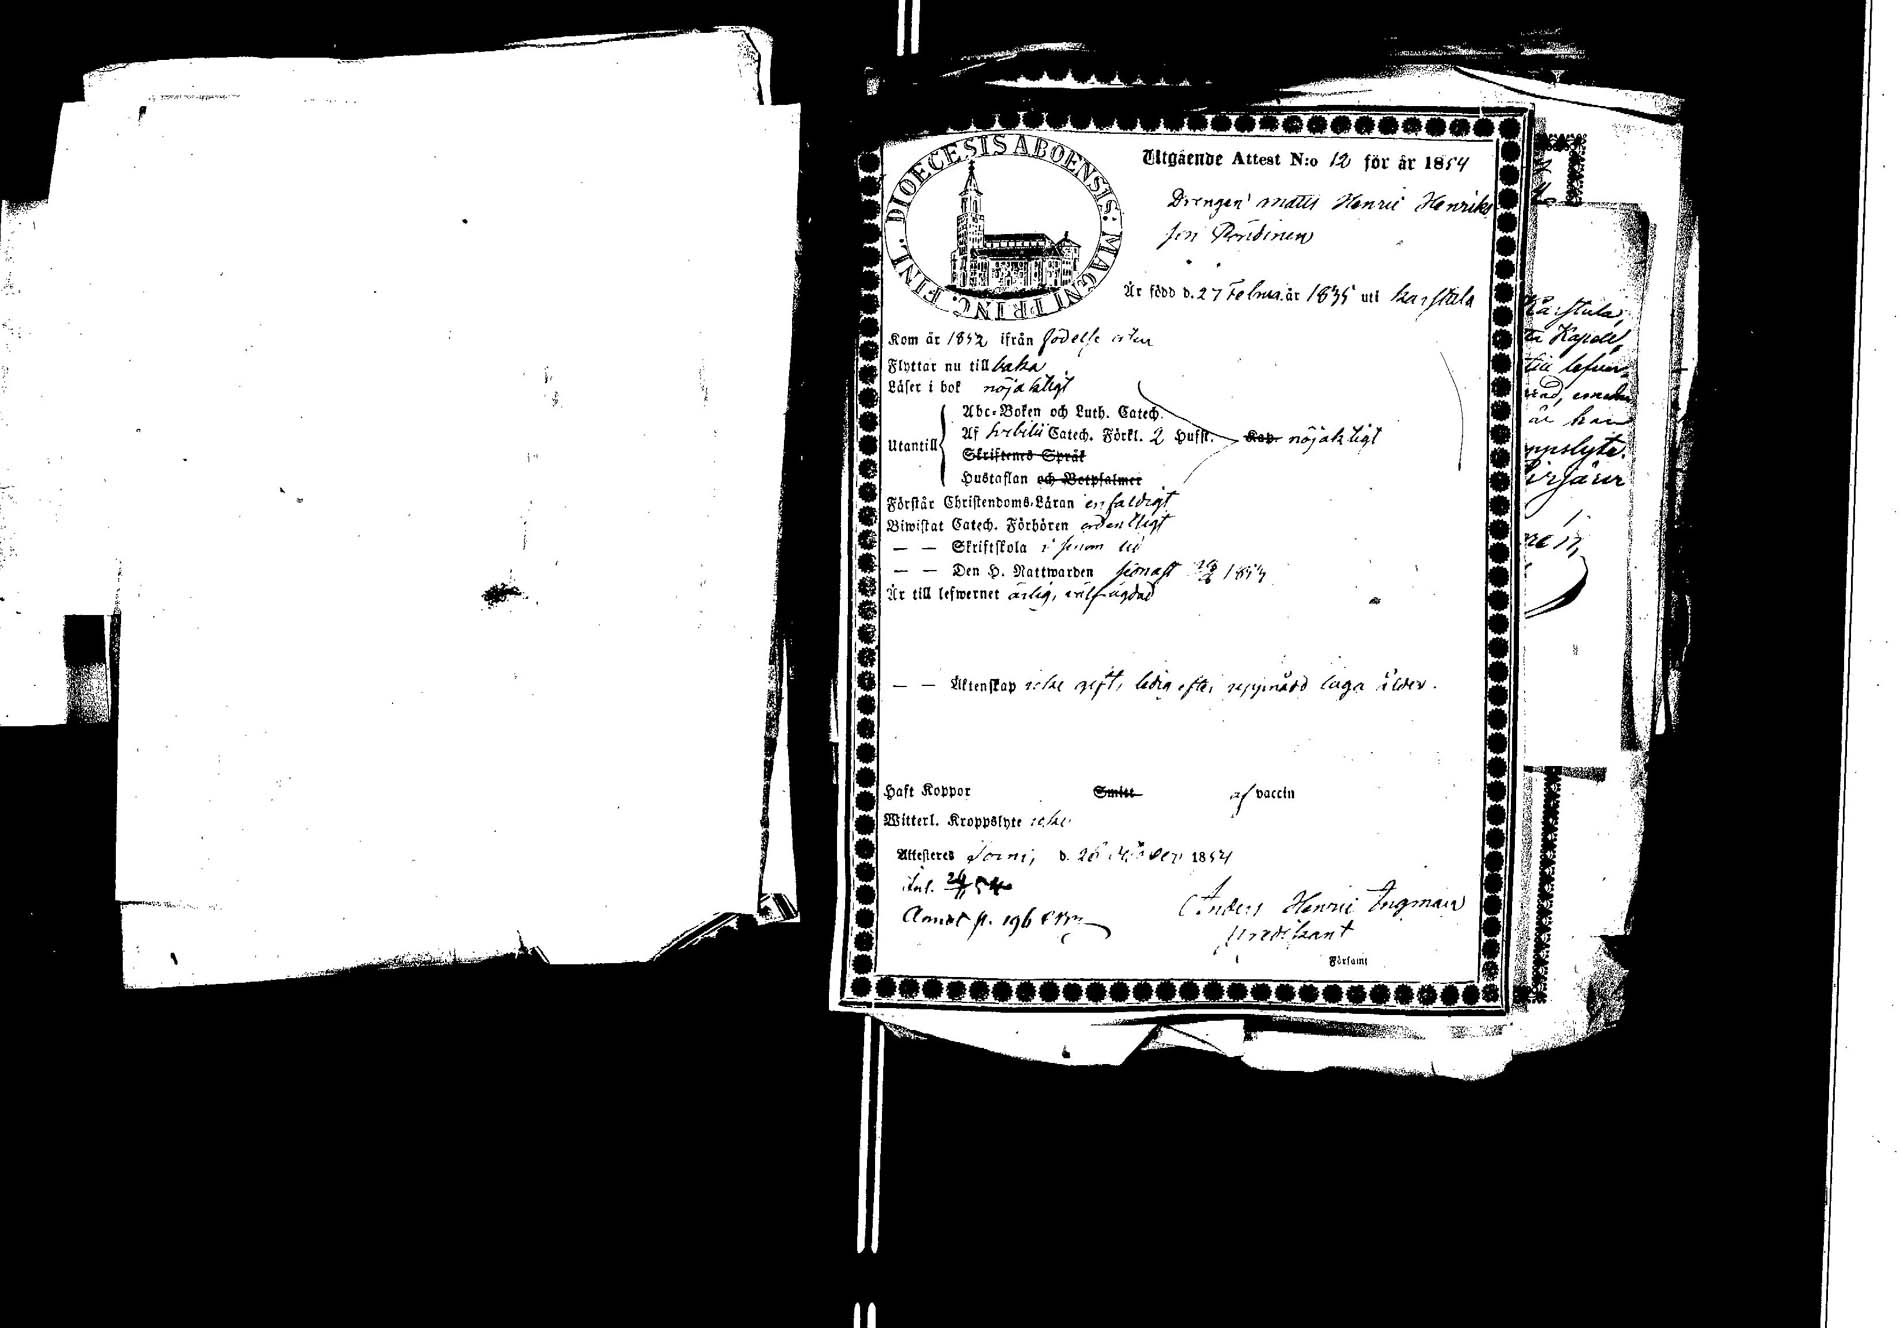 DIOECESIS ABOENSIS: MAGNI PRINC. FINL.
Utgående Attest N:o 12 för år 1854
Drengen Matts Henric Henriks
son
Är född d. 27 Februa. år 1835 uti Karstula
Kom år 1852 ifrån födelse orten
Flyttar nu till baka
Läser i bok nöjaktigt
Utantill
Abc-Boken och Luth. Catech.
Af Svebilii Catech. Förkl. 2 Hufst. Kap. nöjaktigt
Skriftenes Språk
Hustaflan och Botpsalmer
Förstår Christendoms-Läran enfaldigt
Biwistat Catech. Förhören ordentligt
— — Skriftskola i sinom tid
— — Den H. Nattwarden senast 1853
Är till lefwernet ärlig, välfrägdad
— — Äktenskap icke gift, ledig efter uppnådd laga ålder.
Haft Koppor Smitt af vaccin
Witterl. Kroppslyte icke
Attesteres d. 26 October 1854
Anders Henric Ingman
predikant
Församl
Karstula,
Kapell,
till lefver-
år han
kroppslyte.